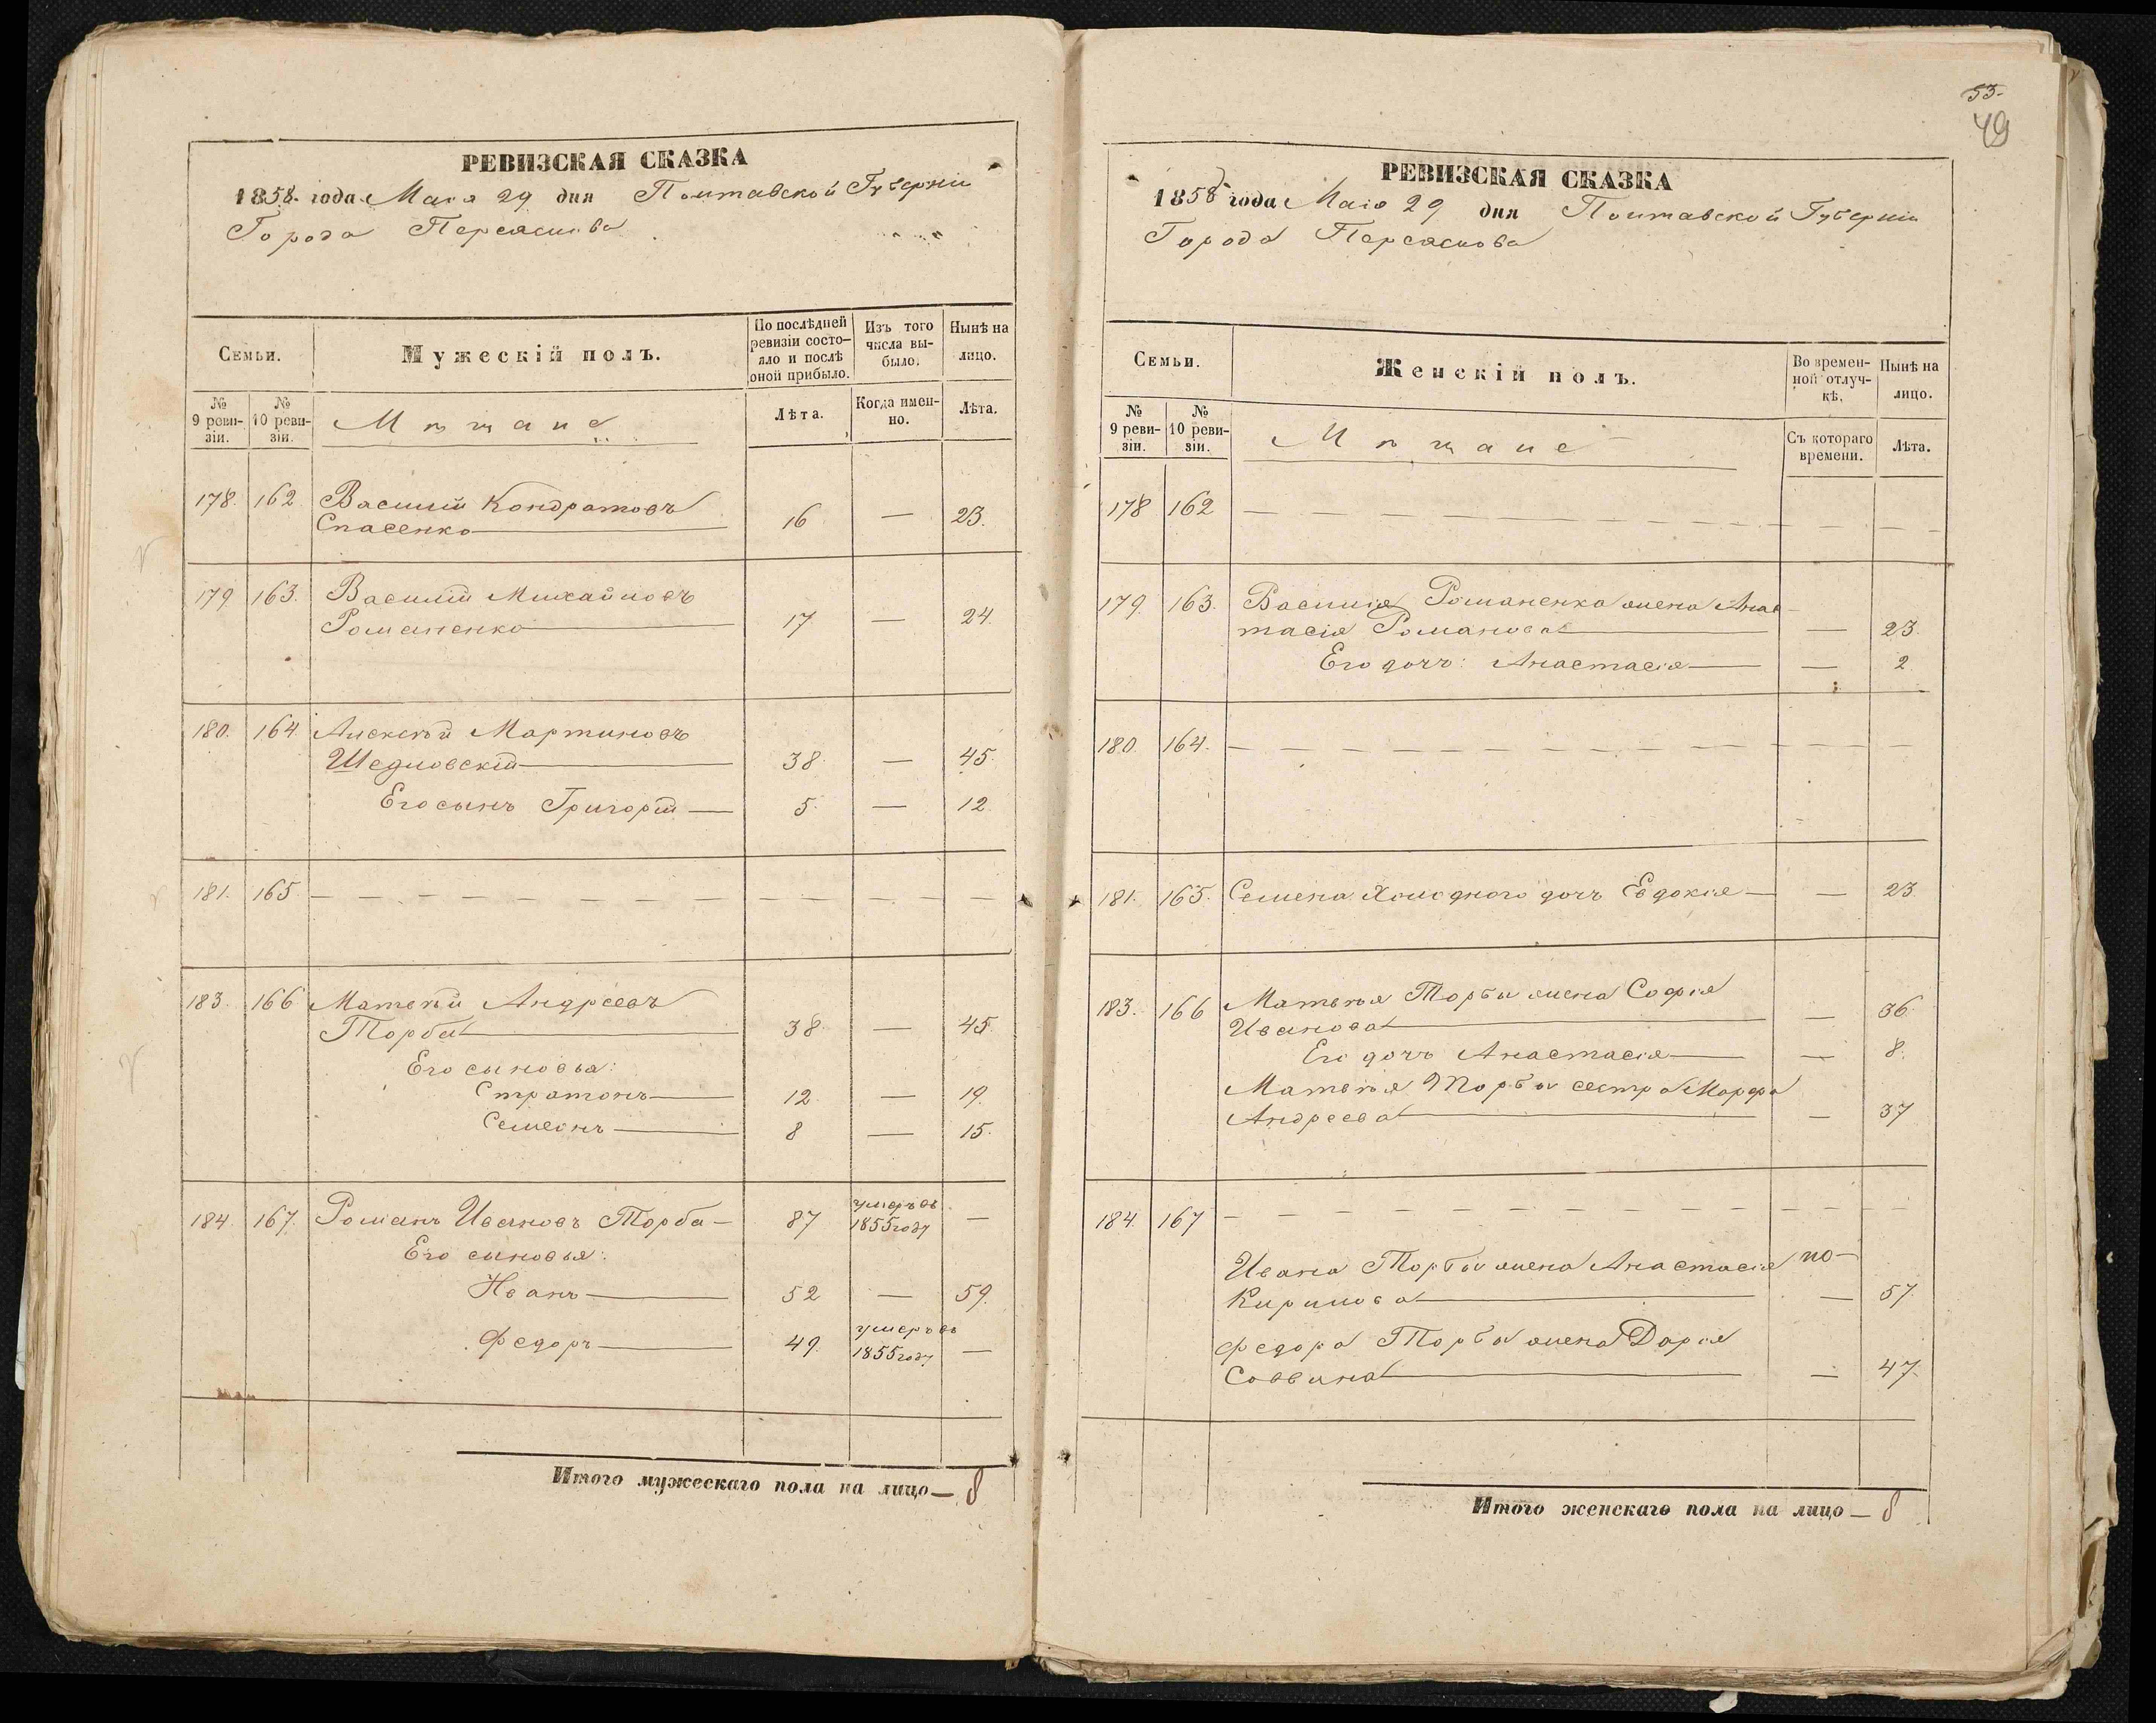 РЕВИЗСКАЯ СКАЗКА
1858 года Маія 29 дня Полтавской Губерніи
Города Переяслова
Семьи.
Мужескій полъ.
По послѣдней ревизіи состо-
яло и послѣ
оной прибыло.
Изъ того
числа вы-
было.
Нынѣ на
лицо.
№
9 реви-
зіи.
№
10 реви-
зіи.
Мѣщане
Лѣта.
Когда имен-
но.
Лѣта.
178. 162 Василій Кондратовъ
Спасенко — 16 — 23.
179 163. Василій Михайловъ
Романенко — 17 — 24.
180. 164 Алексѣй Мартиновъ
Шедловскій — 38 — 45.
Его сынъ Григорій — 5. — 12
181. 165 — — — — — — — — — — — —
183. 166 Матвѣй Андреевъ
Торба — 38 — 45.
Его сыновья:
Стратонъ — 12 — 19.
Семенъ — 8 — 15.
184. 167. Романъ Ивановъ Торба — 87 умеръ въ
1855 году —
Его сыновья:
Иванъ — 52 — 59.
Федоръ — 49. умеръ въ
1855 году —
Итого мужескаго пола на лицо — 8
53.
49
РЕВИЗСКАЯ СКАЗКА
1858 года Маія 29 дня Полтавской Губерніи
Города Переяслова
Семьи.
Женскій полъ.
Во времен-
ной отлуч-
кѣ.
Нынѣ на
лицо.
№
9 реви-
зіи.
№
10 реви-
зіи.
Мѣщане
Съ котораго
времени.
Лѣта.
178 162 — — — — — — — — — — — —
179. 163. Василія Романенка жена Анас-
тасія Романова — — 23.
Его дочь: Анастасія — — 2.
180. 164. — — — — — — — — — — — —
181. 165. Семена Холодного дочь Евдокія — — 23
183. 166 Матвѣя Торбы жена Софія
Иванова — — 36
Его дочь Анастасія — — 8.
Матвѣя Торбы сестра Марфа
Андреева — — 37
184. 167 — — — — — — — — — — — —
Ивана Торбы жена Анастасія по-
Кирилова — — 57.
Федора Торбы жена Дарія
Саввина — — 47.
Итого женскаго пола на лицо — 8